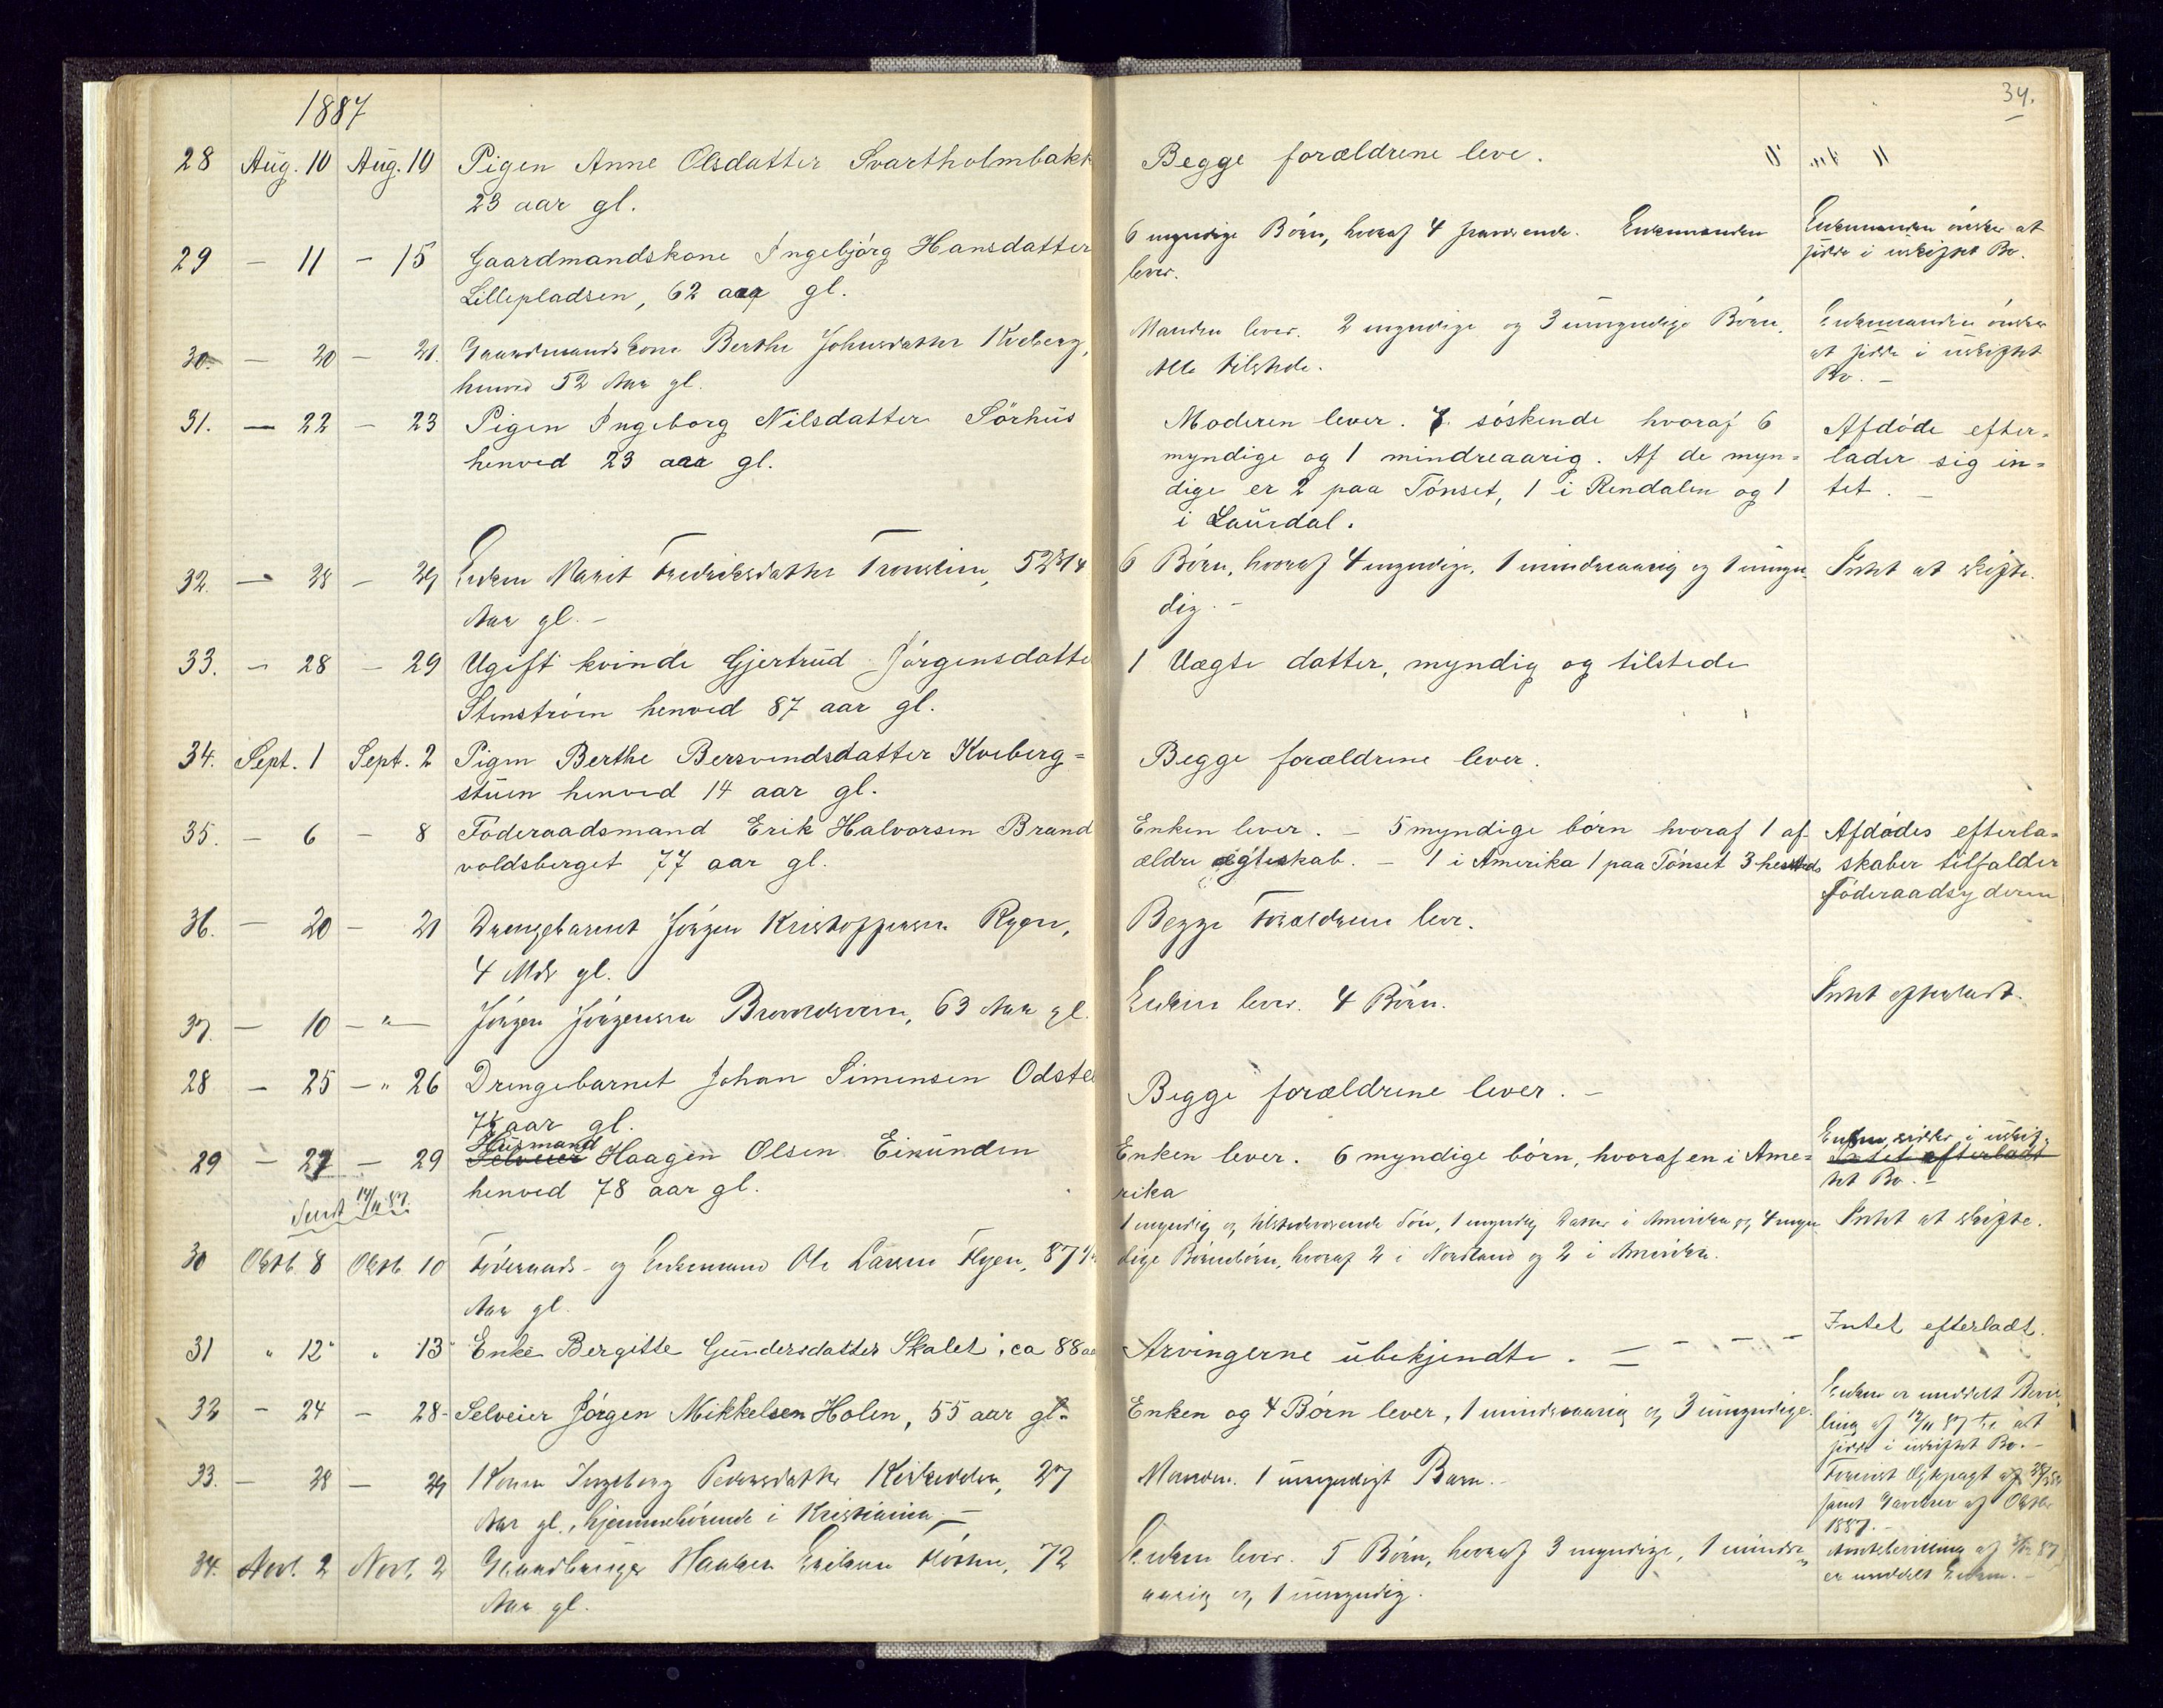 1887
34.
28 Aug. 10 Aug. 10 Pigen Anne Olsdatter Svartholmbakk Begge forældrene leve.
23 aar gl.
29 — 11 — 15 Gaardmandskone Ingebjørg Hansdatter 6 myndige Børn, hvoraf 4 fraværende. Enkemanden Enkemanden ønsker at
Lillepladsen, 62 aar gl. lever. sidde i uskiftet Bo.
30 — 20 — 21. Gaardmandskone Berthe Johnsdatter Kveberg, Manden lever. 2 myndige og 3 umyndige Børn. Enkemanden ønsker
henved 52 Aar gl. Alle tilstede. at sidde i uskiftet
Bo. —
31. — 22 — 23 Pigen Ingeborg Nilsdatter Sørhus Moderen lever. 7 søskende hvoraf 6 Afdøde efter-
henved 23 aar gl. myndige og 1 mindreaarig. Af de myn= lader sig in=
dige er 2 paa Tønset, 1 i Rendalen og 1 tet. —
i Laurdal.
32. — 28 — 29 Enken Marit Fredriksdatter Tronslien, 52 3/4 6 Børn, hvoraf 4 myndige, 1 mindreaarig og 1 umyn Intet at skifte.
Aar gl. — dig. —
33. — 28 — 29 Ugift kvinde Gjertrud Jørgensdatte 1 Uægte datter, myndig og tilstede
Stenstrøm henved 87 aar gl.
34. Sept. 1 Sept. 2 Pigen Berthe Bersvendsdatter Kveberg= Begge forældrene lever.
stuen henved 14 aar gl.
35. — 6 — 8 Föderaadsmand Erik Halvorsen Brand Enken lever. — 5 myndige börn hvoraf 1 af Afdødes efterla=
voldsberget 77 aar gl. ældre ægteskab. — 1 i Amerika 1 paa Tønset 3 hersteds skaber tilfalder
Föderaadsyderen
36. — 20 — 21 Drengebarnet Jørgen Kristoffersen Ryen, Begge Forældrene lever.
4 Mdr gl.
37. — 10 — " — Jørgen Jørgensen 63 Aar gl. Enken lever. 4 Børn. Intet efterladt.
28 — 25 — " 26 Drengebarnet Johan Simensen Odste Begge forældrene lever. —
7½ aar gl.
29 — 27 — 29 Husmand Selveier Haagen Olsen Eimunden Enken lever. 6 myndige børn, hvoraf en i Ame= Enken sidder i uskif-
Intet efterladt
henved 78 aar gl. rika tet Bo. —
Sendt 14/11 87.
30 Oktb. 8 Oktb. 10 Føderaads- og Enkemand Ole Larsen Flyen, 87 1 myndig og tilstedeværende Søn, 1 myndig Datter i Amerika og 4 myn Intet at skifte.
Aar gl. dige Børnebørn, hvoraf 2 i Nordland og 2 i Amerika.
31 " 12" " 13" Enke Bergitte Gundersdatter Skalet, ca 88 aa Arvingerne ubekjendte. — — — Intet efterladt.
32 — 24 — 28 - Selveier Jørgen Mikkelsen Holen, 55 aar gl. Enken og 4 Børn lever, 1 mindreaarig og 3 umyndige. Enken er meddelt Bevil
ling af 14/11 87 til at
sidde i uskiftet Bo. —
33. — 28 — 29 Kone Ingeborg Pedersdatter 27 Manden. 1 umyndigt Barn. —
Aar gl., hjemmehørende i Kristiania. — samt Gavebrev af Oktbr
1887. —
34. Novb. 2 Novb. 2 Gaardbruger Haaken Eriksen 72 Enken lever. 5 Børn, hvoraf 3 myndige, 1 mindre Amtsbevilling af
Aar gl. aarig og 1 umyndig. er meddelt Enken. —